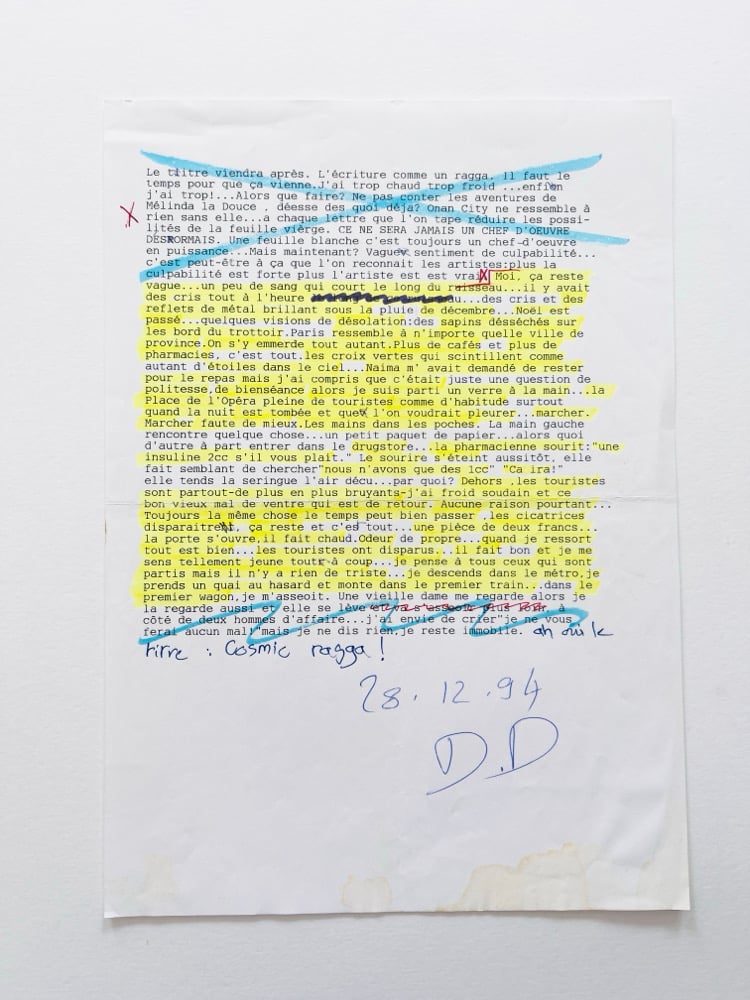 Le tiitre viendra après. L'écriture comme un ragga. Il faut le
temps pour que ça vienne.J'ai trop chaud trop froid ...enfin
j'ai trop!...Alors que faire? Ne pas conter les aventures de
Mélinda la Douce , déesse des quoi déja? Onan City ne ressemble à
X rien sans elle...a chaque lettre que l'on tape réduire les possi-
lités de la feuille vièrge. CE NE SERA JAMAIS UN CHEF D'OEUVRE
DESRORMAIS. Une feuille blanche c'est toujours un chef-d'oeuvre
en puissance...Mais maintenant? Vague sentiment de culpabilité...
c'est peut-être à ça que l'on reconnait les artistes:plus la
culpabilité est forte plus l'artiste est est vrai X Moi, ça reste
vague...un peu de sang qui court le long du ruisseau...il y avait
des cris tout à l'heure au...des cris et des
reflets de métal brillant sous la pluie de décembre...Noël est
passé...quelques visions de désolation:des sapins désséchés sur
les bord du trottoir.Paris ressemble à n'importe quelle ville de
province.On s'y emmerde tout autant.Plus de cafés et plus de
pharmacies, c'est tout.les croix vertes qui scintillent comme
autant d'étoiles dans le ciel...Naima m' avait demandé de rester
pour le repas mais j'ai compris que c'était juste une question de
politesse,de bienséance alors je suis parti un verre à la main...la
Place de l'Opéra pleine de touristes comme d'habitude surtout
quand la nuit est tombée et que l'on voudrait pleurer...marcher.
Marcher faute de mieux.Les mains dans les poches. La main gauche
rencontre quelque chose...un petit paquet de papier...alors quoi
d'autre à part entrer dans le drugstore...la pharmacienne sourit:"une
insuline 2cc s'il vous plait." Le sourire s'éteint aussitôt, elle
fait semblant de chercher"nous n'avons que des 1cc" "Ca ira!"
elle tends la seringue l'air décu...par quoi? Dehors ,les touristes
sont partout-de plus en plus bruyants,j'ai froid soudain et ce
bon vieux mal de ventre qui est de retour. Aucune raison pourtant...
Toujours la même chose le temps peut bien passer ,les cicatrices
disparaitrent, ça reste et c'est tout...une pièce de deux francs...
la porte s'ouvre,il fait chaud.Odeur de propre...quand je ressort
tout est bien...les touristes ont disparus...il fait bon et je me
sens tellement jeune tout à coup...je pense à tous ceux qui sont
partis mais il n'y a rien de triste...je descends dans le métro,je
prends un quai au hasard et monte dans le premier train...dans le
premier wagon,je m'asseoit. Une vieille dame me regarde alors je
la regarde aussi et elle se lève à
côté de deux hommes d'affaire...j'ai envie de crier"je ne vous
ferai aucun mal"mais je ne dis rien,je reste immobile. ah oui le
titre : Cosmic ragga !
28.12.94
D.D